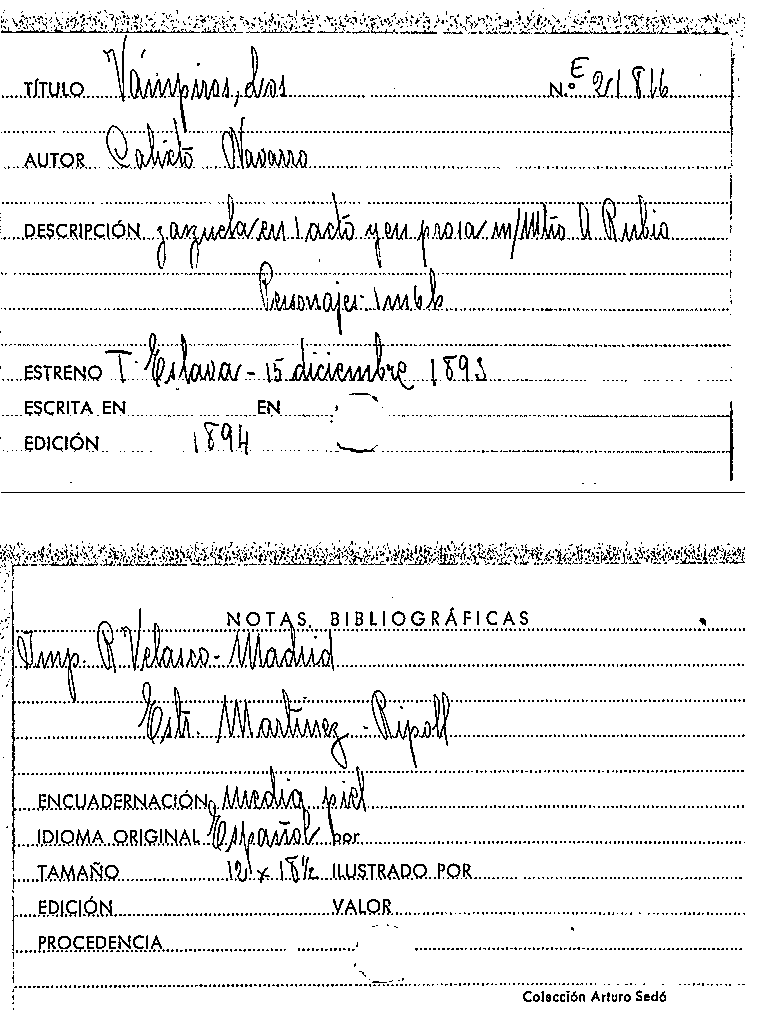 TÍTULO Vámpiros, Los N.º E 21816
AUTOR Calixto Navarro
DESCRIPCIÓN zarzuela en 1 acto y en prosa m/Mtro A Rubio
Personajes: 1m 6h
ESTRENO T. Eslava - 15 diciembre 1893
ESCRITA EN EN
EDICIÓN 1894
NOTAS BIBLIOGRÁFICAS
Imp. R Velasco - Madrid
Estr. Martínez - Ripoll
ENCUADERNACIÓN media piel
IDIOMA ORIGINAL Español por
TAMAÑO 12 x 18½ ILUSTRADO POR
EDICIÓN VALOR
PROCEDENCIA
Colección Arturo Sedó